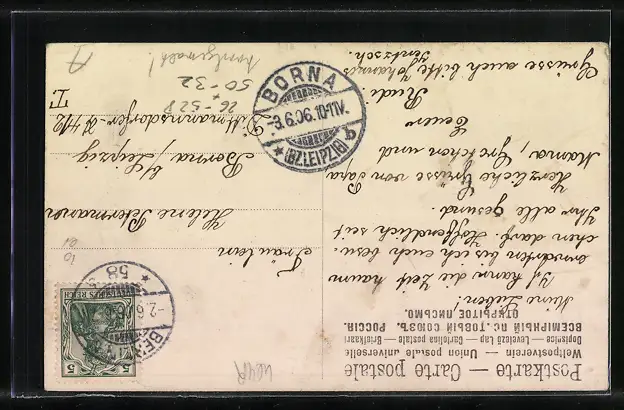 Postkarte — Carte postale
Weltpostverein — Union postale universelle
Dopisnice — Levelező Lap — Cartolina postale — Briefkaart
ВСЕМІРНЫЙ ПОЧТОВЫЙ СОЮЗЪ. РОССІЯ.
ОТКРЫТОЕ ПИСЬМО.
Meine Lieben!
Ich kann die Zeit kaum
erwarten bis ich euch besu-
chen darf. Hoffendlich seit
Ihr alle gesund.
Herzliche Grüsse von Papa
Mama, Gretchen und
Euer
Rudi.
Grüsse auch bitte Johannes
Jentzsch.
5
DEUTSCHES REICH
5
BERLIN
-2.6.06
* 58
Fräulein
Helene Petermann
Borna b/Leipzig
T 7412
BORNA
-3.6.06. 10-11V.
* (BZ LEIPZIG)
26-528
50-32